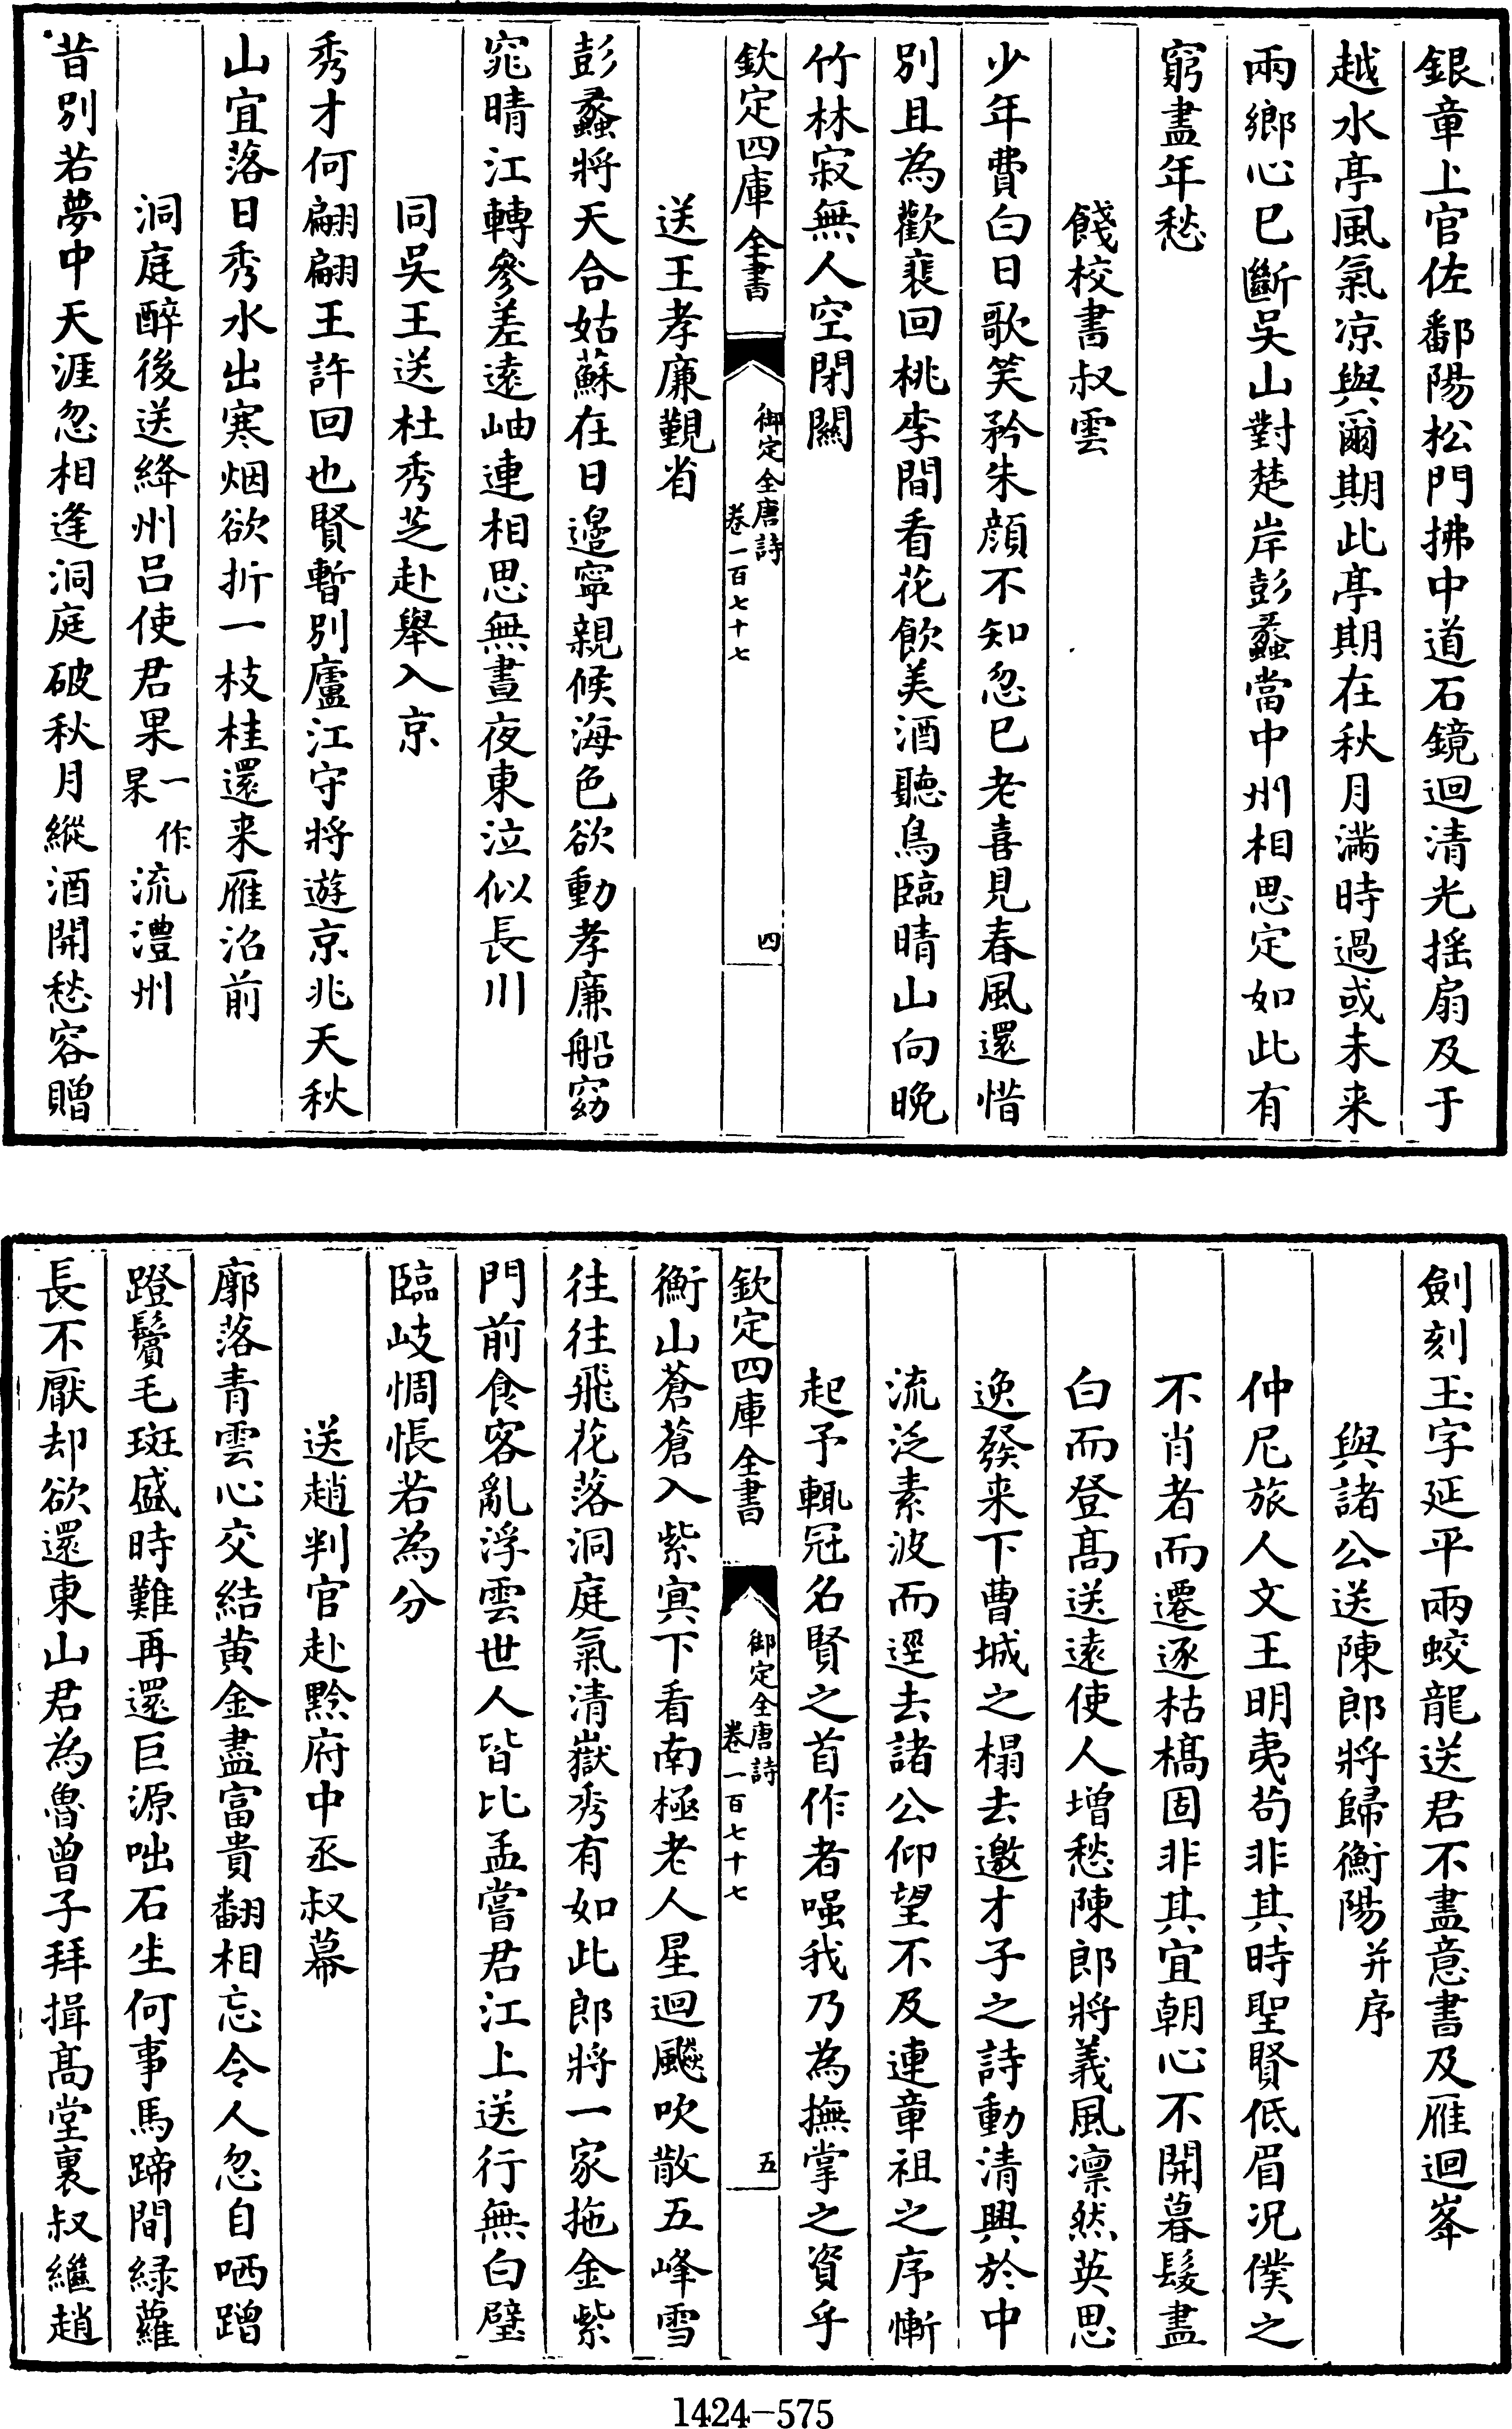 銀章上官佐鄱陽松門拂中道石鏡迴清光揺扇及于
越水亭風氣凉與爾期此亭期在秋月滿時過或未来
兩鄉心已斷吳山對楚岸彭蠡當中州相思定如此有
窮盡年愁
餞校書叔雲
少年費白日歌笑矜朱顔不知忽已老喜見春風還惜
別且為歡裴回桃李間看花飲美酒聽鳥臨晴山向晚
竹林寂無人空閉關
欽定四庫全書
御定全唐詩
卷一百七十七
四
送王孝廉覲省
彭蠡將天合姑蘇在日邉寧親候海色欲動孝廉船窈
窕晴江轉參差遠岫連相思無晝夜東泣似長川
同吳王送杜秀芝赴舉入京
秀才何翩翩王許回也賢暫別廬江守將遊京兆天秋
山宜落日秀水出寒烟欲折一枝桂還来雁沼前
洞庭醉後送絳州吕使君果一作杲流澧州
昔別若夢中天涯忽相逢洞庭破秋月縱酒開愁容贈
劍刻玉字延平兩蛟龍送君不盡意書及雁迴峯
與諸公送陳郎將歸衡陽并序
仲尼旅人文王明夷茍非其時聖賢低眉况僕之
不肖者而遷逐枯槁固非其宜朝心不開暮髮盡
白而登髙送逺使人増愁陳郎將義風凛然英思
逸發来下曹城之榻去邀才子之詩動清興於中
流泛素波而逕去諸公仰望不及連章祖之序慚
起予輒冠名賢之首作者嗤我乃為撫掌之資乎
欽定四庫全書
御定全唐詩
卷一百七十七
五
衡山蒼蒼入紫㝠下看南極老人星迴飈吹散五峰雪
往往飛花落洞庭氣清嶽秀有如此郎將一家拖金紫
門前食客亂浮雲世人皆比孟嘗君江上送行無白璧
臨岐惆悵若為分
送趙判官赴黔府中丞叔幕
廓落青雲心交結黄金盡富貴翻相忘令人忽自哂蹭
蹬鬢毛斑盛時難再還巨源咄石生何事馬蹄間緑蘿
長不厭却欲還東山君為魯曾子拜揖髙堂裏叔繼趙
1424-575